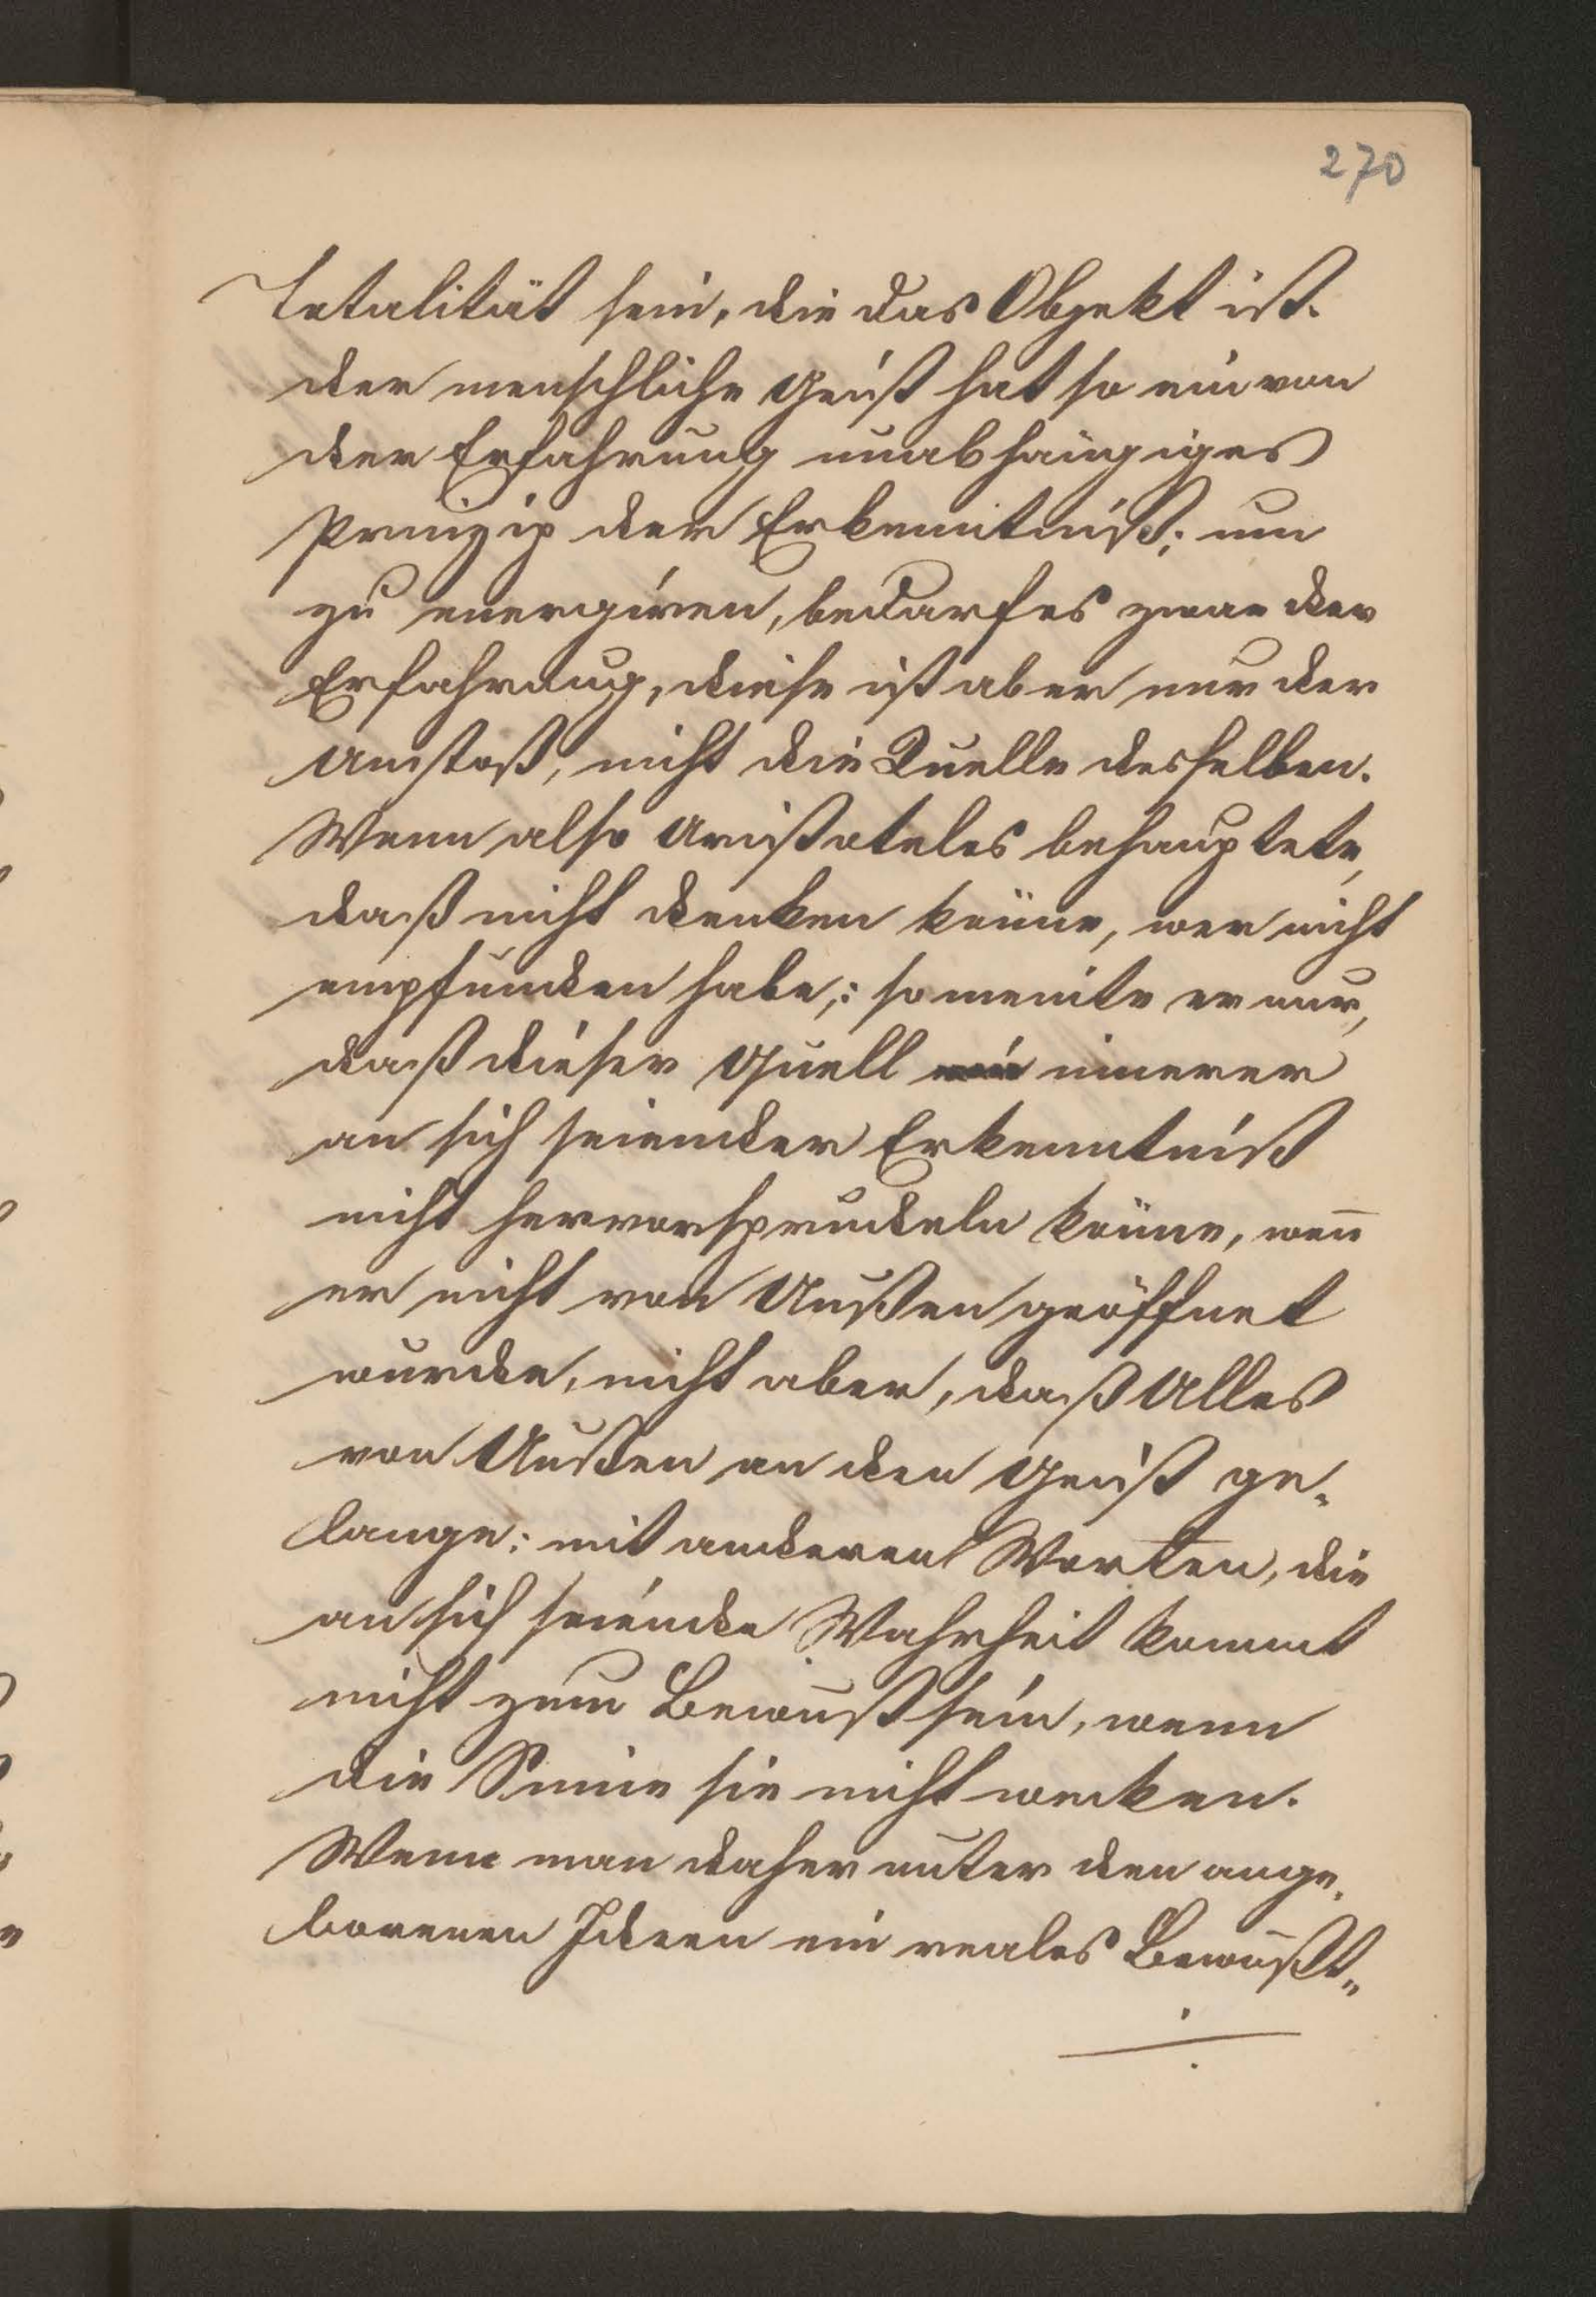 270
Totalität sein, die das Objekt ist.
der menschliche Geist hat so ein von
der Erfahrung unabhängiges
Prinzip der Erkenntniß; um
zu energiren, bedarf es zwar der
Erfahrung, diese ist aber nur der
Anstoß, nicht die Quelle desselben.
Wenn also Aristoteles behauptete,
daß nicht denken könne, wer nicht
empfunden habe,: so meinte er nur,
daß dieser Quell innerer
an sich seiender Erkenntniß
nicht hervorsprudeln könne, wen̄
er nicht von Außen geöffnet
wurde, nicht aber, daß Alles
von Außen an den Geist ge„
lange: mit anderen Worten, die
an sich seiende Wahrheit kommt
nicht zum Bewußtsein, wenn
die Sinne sie nicht wecken.
Wenn man daher unter den ange„
borenen Ideen ein reales Bewußt„